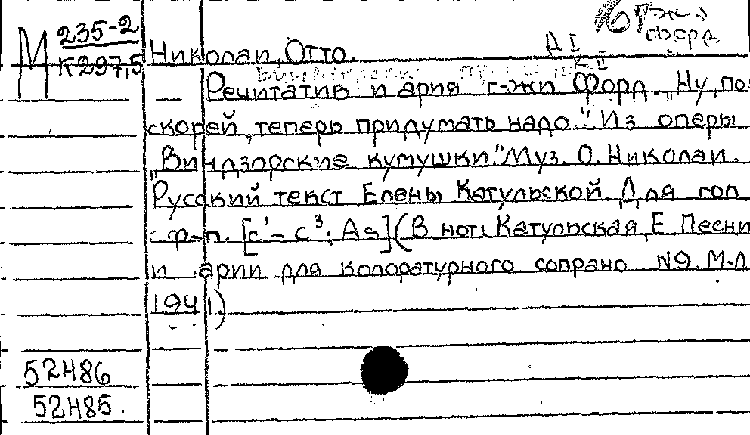 М 235-2
К297,5
Николаи, Отто.
Д I
II
Речитатив и ария г-жи Форд. „Ну, по-
скорей, теперь придумать надо." Из оперы
„Виндзорские кумушки." Муз. О. Николаи.
Русский текст Елены Катульской. Для гол.
с ф-п. [c¹ – c³; As] (В нот. Катульская, Е. Песни
и арии для колоратурного сопрано №9. М-Л
1941)
52486
52485.